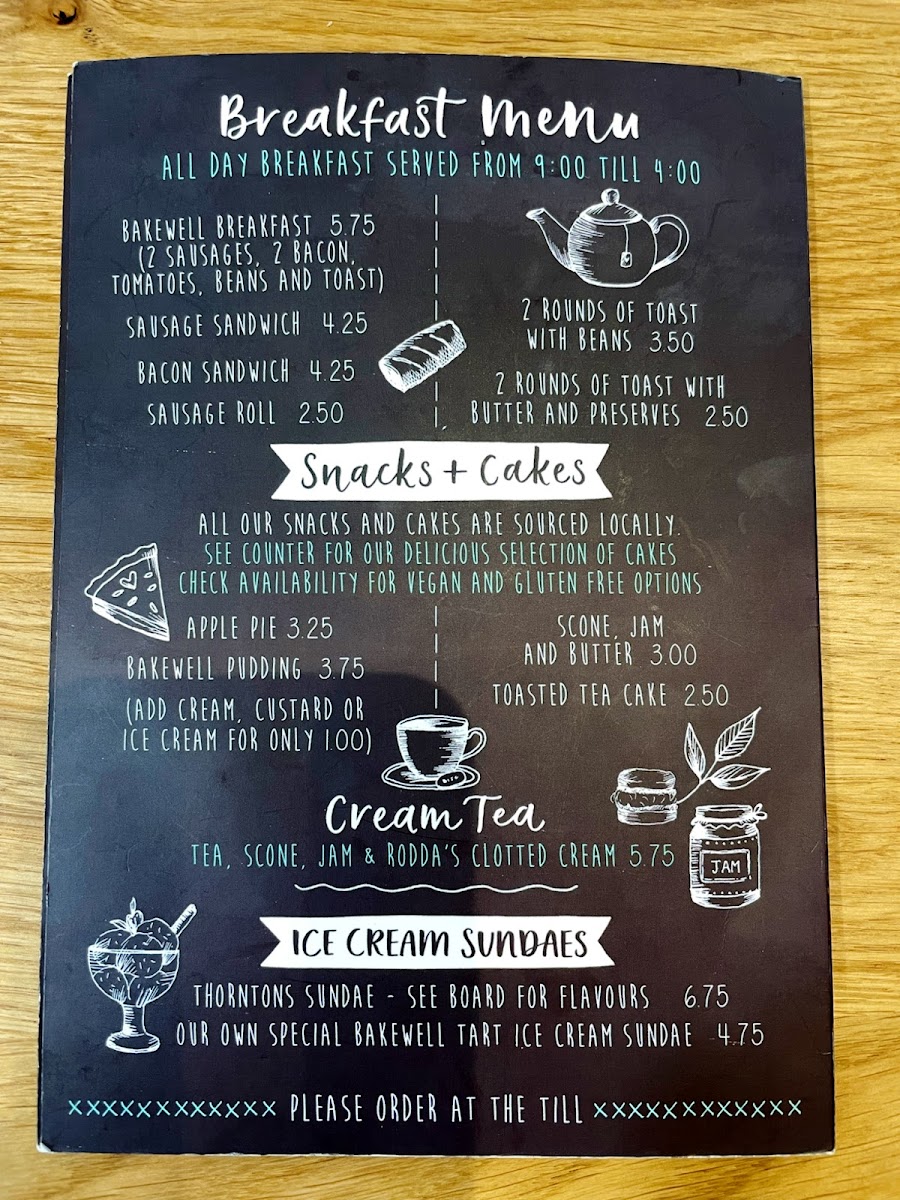 Breakfast Menu
ALL DAY BREAKFAST SERVED FROM 9:00 TILL 4:00
BAKEWELL BREAKFAST 5.75
(2 SAUSAGES, 2 BACON,
TOMATOES, BEANS AND TOAST)
SAUSAGE SANDWICH 4.25
BACON SANDWICH 4.25
SAUSAGE ROLL 2.50
2 ROUNDS OF TOAST
WITH BEANS 3.50
2 ROUNDS OF TOAST WITH
BUTTER AND PRESERVES 2.50
Snacks + Cakes
ALL OUR SNACKS AND CAKES ARE SOURCED LOCALLY.
SEE COUNTER FOR OUR DELICIOUS SELECTION OF CAKES
CHECK AVAILABILITY FOR VEGAN AND GLUTEN FREE OPTIONS
APPLE PIE 3.25
BAKEWELL PUDDING 3.75
(ADD CREAM, CUSTARD OR
ICE CREAM FOR ONLY 1.00)
SCONE, JAM
AND BUTTER 3.00
TOASTED TEA CAKE 2.50
Cream Tea
TEA, SCONE, JAM & RODDA'S CLOTTED CREAM 5.75
JAM
ICE CREAM SUNDAES
THORNTONS SUNDAE - SEE BOARD FOR FLAVOURS 6.75
OUR OWN SPECIAL BAKEWELL TART ICE CREAM SUNDAE 4.75
XXXXXXXXXXXX PLEASE ORDER AT THE TILL XXXXXXXXXXXX